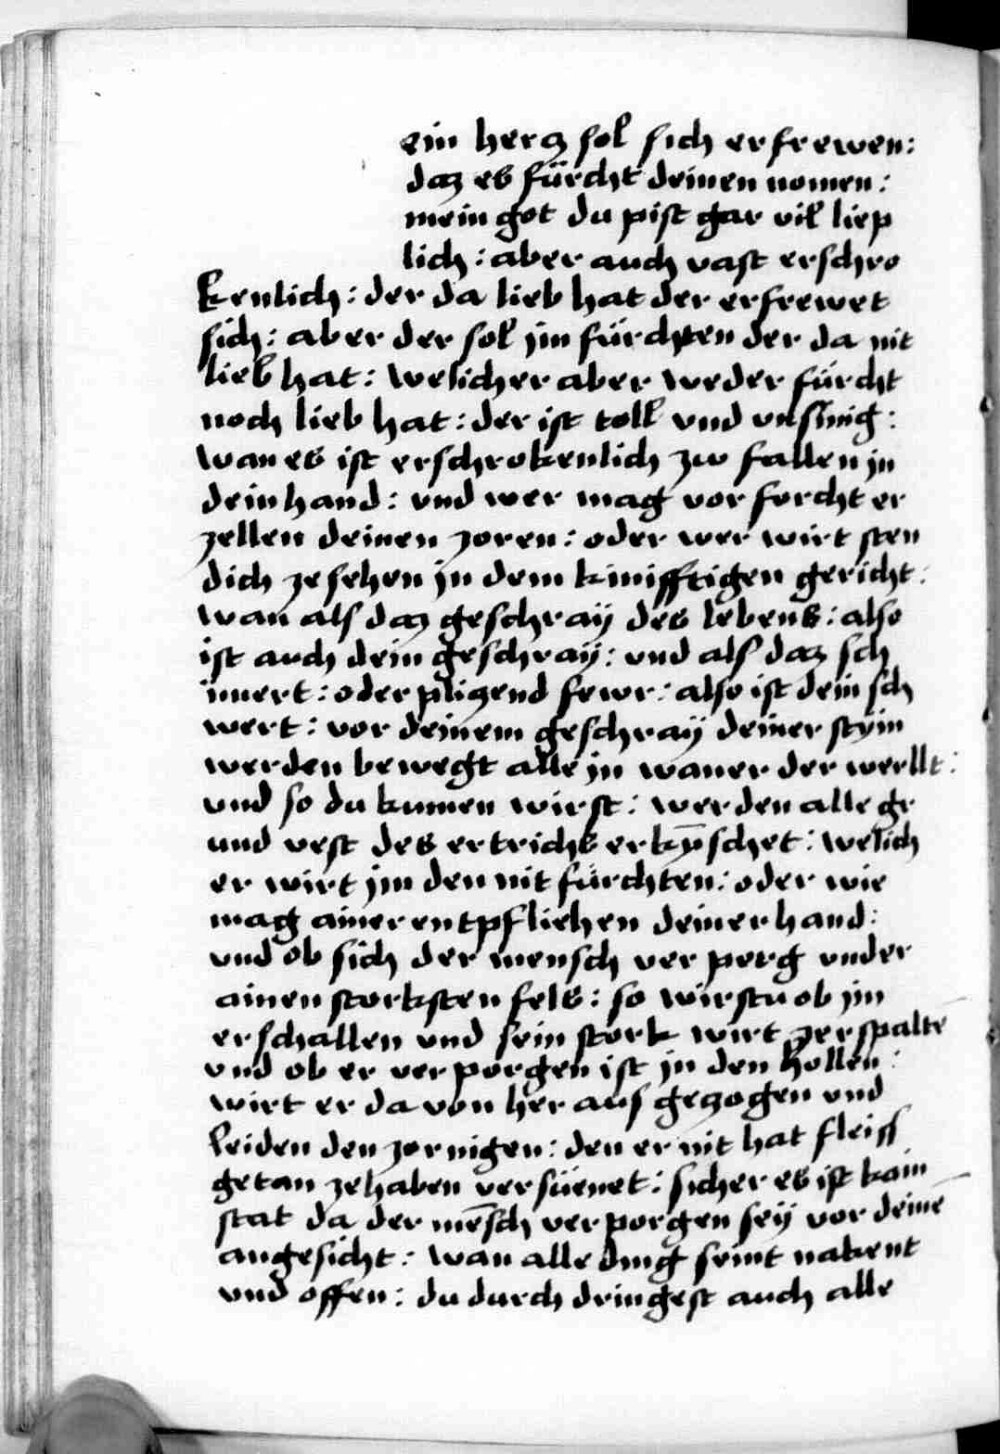 ein herz sol sich erfrewen:
daz es fürcht deinen nomen:
mein got du pist gar vil liep
lich: aber auch vast erschro
kenlich: der da lieb hat der erfrewet
sich: aber der sol jm fürchten der da nit
lieb hat: welicher aber weder fürcht
noch lieb hat: der ist toll vnd vnsinig:
wan es ist erschrokenlich zw fallen jn
dein hand: vnd wer mag vor forcht er
zellen deinen zoren: oder wer wirt sten
dich ze sehen jn dem kinifftigen gericht:
wan als daz geschray des lebens: also
ist auch dein geschray: vnd als daz sch
inuert: oder plizend fewr: also ist dein sch
wert: vor deinem geschray deiner stym
werden bewegt alle jn waner der werllt:
vnd so du kumen wirst: werden alle gr
und vest des ertrichs erkȳschet: welich
er wirt jm den nit fürchten: oder wie
mag ainer entpfliehen deiner hand:
vnd ob sich der mensch verperg vnder
ainen storksten fels: so wirstu ob jm
erschallen vnd sein stork wirt zerspaltē
vnd ob er verporgen ist jn den hollen:
wirt er da von her aus gezogen vnd
leiden den zornigen: den er nit hat fleiss
getan zehaben versüenet: sicher es ist kain
stat da der mēsch verporgen sey vor deinē
angesicht: wan alle ding seint nakent
vnd offen: du durch dringest auch alle